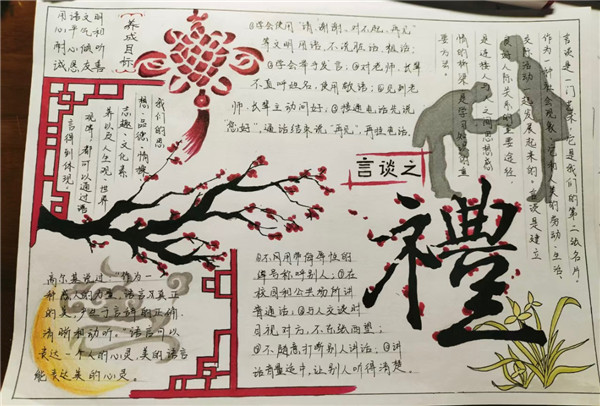 养成目标
用语文明
心平和听
耐心做友
诚恳友善
①学会使用“请、谢谢、对不起、再见”
等文明用语,不说脏话、粗话;
②学会举手发言;③对老师、长辈
不直呼姓名,使用敬语;④见到老
师、长辈主动问好;⑤接通电话先说
“您好”,通话结束说“再见”,再挂电话。
言谈是一门艺术,它是我们的第二张名片,
作为一种社会现象,它和人类的劳动、生活、
交际活动一起发展起来的,言谈是建立
良好人际关系的重要途径,
是连接人与人之间思想感
情的桥梁,是学习知识的重
要方式。
我们的思
想、品德、情操、
志趣、文化素
养以及人生观、世界
观等,都可以通过语
言得到体现。
言谈之
禮
高尔基说过:“作为一
种感人的力量,语言真正
的美,产生于言辞的正确、
清晰和动听。”语言可以
表达一个人的心灵,美的语言
能表达美的心灵。
①不用带侮辱性的
绰号称呼别人;②在
校园和公共场所讲
普通话;③与人交谈时
目视对方,不东张西望;
④不随意打断别人讲话;⑤讲
话音量适中,让别人听得清楚。